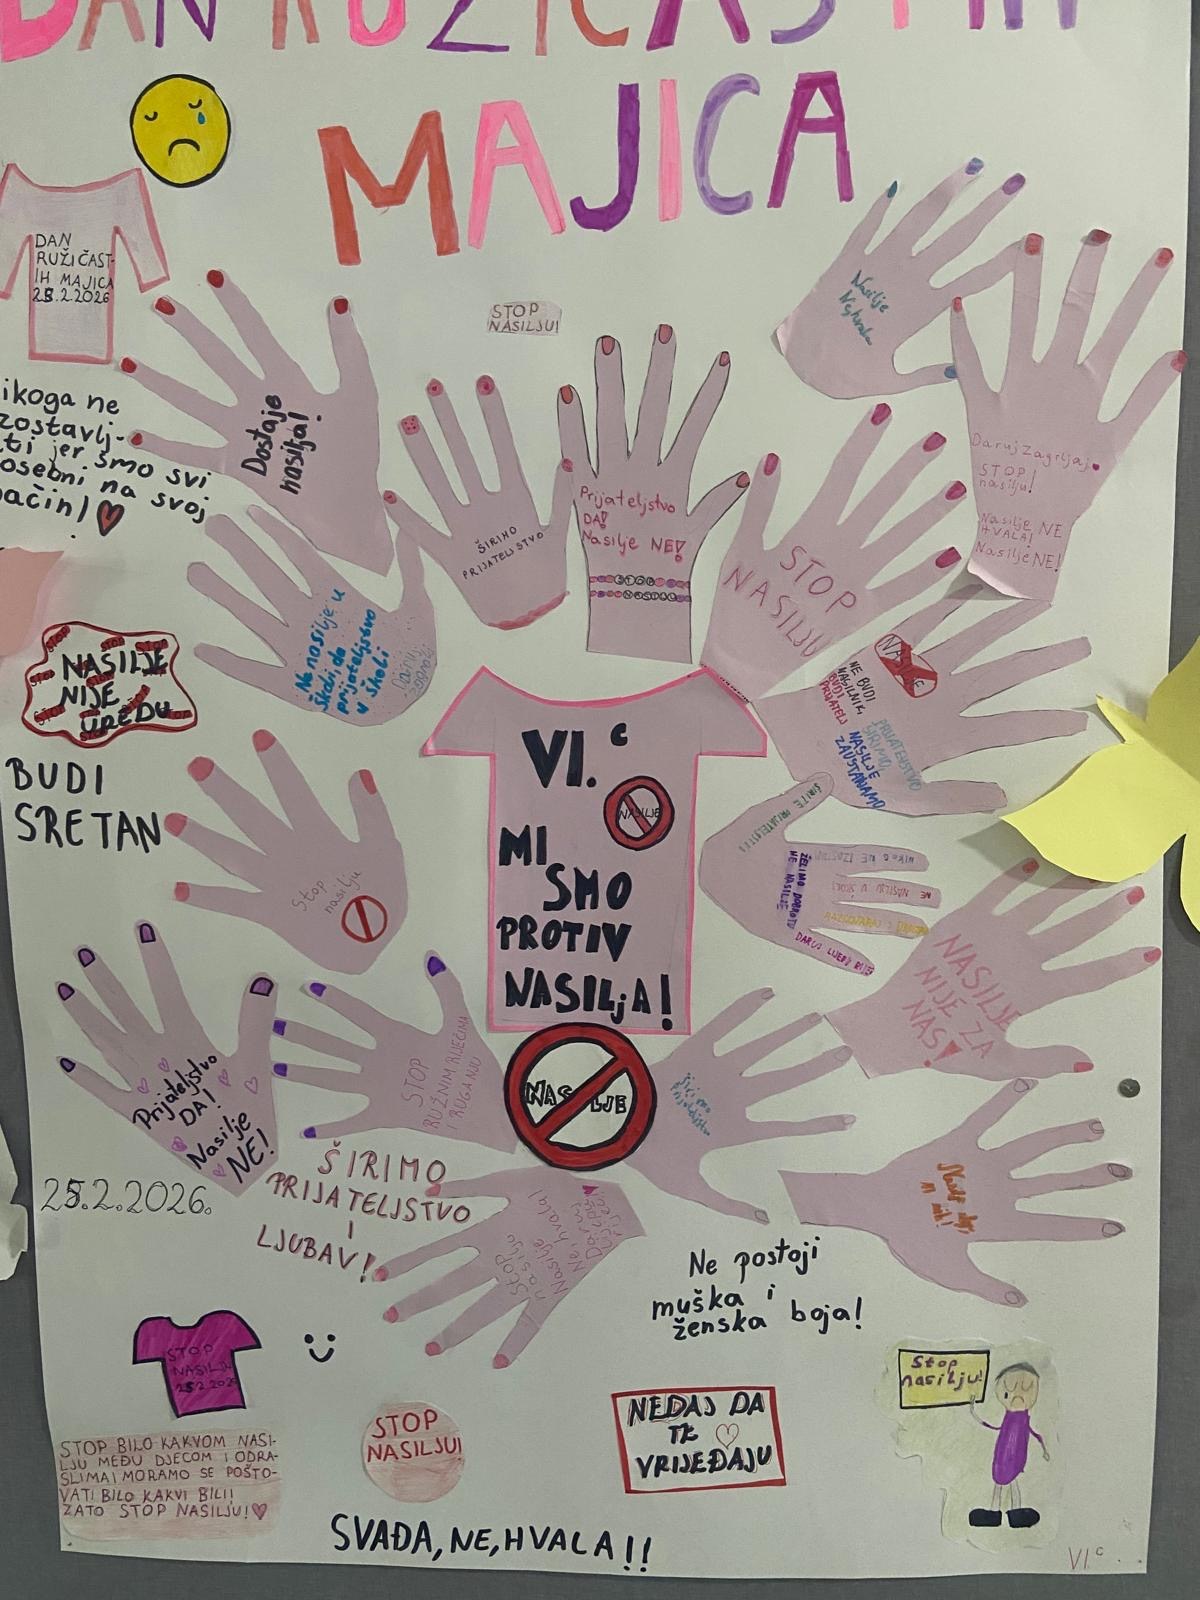 DAN RUŽIČASTIH
MAJICA
DAN
RUŽIČAST-
IH MAJICA
25.2.2026
STOP
NASILJU!
Nasilje
Dostaje
nasilja!
ikoga ne
zostavlj-
ti jer smo svi
osebni na svoj
način!
ŠIRIMO
PRIJATELJSTVO
Prijateljstvo
DA!
Nasilje NE!
STOP
NASILJU
STOP
NASILJU
Daruj zagrljaj
STOP!
nasilju!
Nasilje NE
HVALA!
Nasilje NE!
Ne nasilje u
školi, da
prijateljstvo
u školi
NASILJE
NE BUDI
NASILNIK,
BUDI
PRIJATELJ
PRIJATELJSTVO
ŠIRIMO,
NASILJE
ZAUSTAVIMO
NASILJE
NIJE
UREDU
STOP
BUDI
SRETAN
VI. c
NASILJE
MI
SMO
PROTIV
NASILjA!
ŠIRITE PRIJATELJSTVO
ŽELIMO DOBROTU
NE NASILJE
NIKOGA NE
NE NASILJU U ŠKOLI
DARUJ LIJEPU RIJEČ
Stop
nasilju
NASILJE
NIJE ZA
NAS!
Prijateljstvo
DA!
Nasilje
NE!
STOP
RUŽNIM RIJEČIMA
I RUGANJU
NASILJE
Širimo
Prijateljstvo
25.2.2026.
ŠIRIMO
PRIJATELJSTVO
I
LJUBAV!
STOP
nasilju
Nasilje
Ne hvala!
Daruj
lijepu
riječ
Ne postoji
muška i
ženska boja!
STOP
NASILJU
25.2.2026
Stop
nasilju!
STOP BILO KAKVOM NASI-
LJU MEĐU DJECOM I ODRA-
SLIMA! MORAMO SE POŠTO-
VATI BILO KAKVI BILI!
ZATO STOP NASILJU!
STOP
NASILJU!
NEDAJ DA
TE
VRIJEĐAJU
SVAĐA, NE, HVALA!!
VI. c